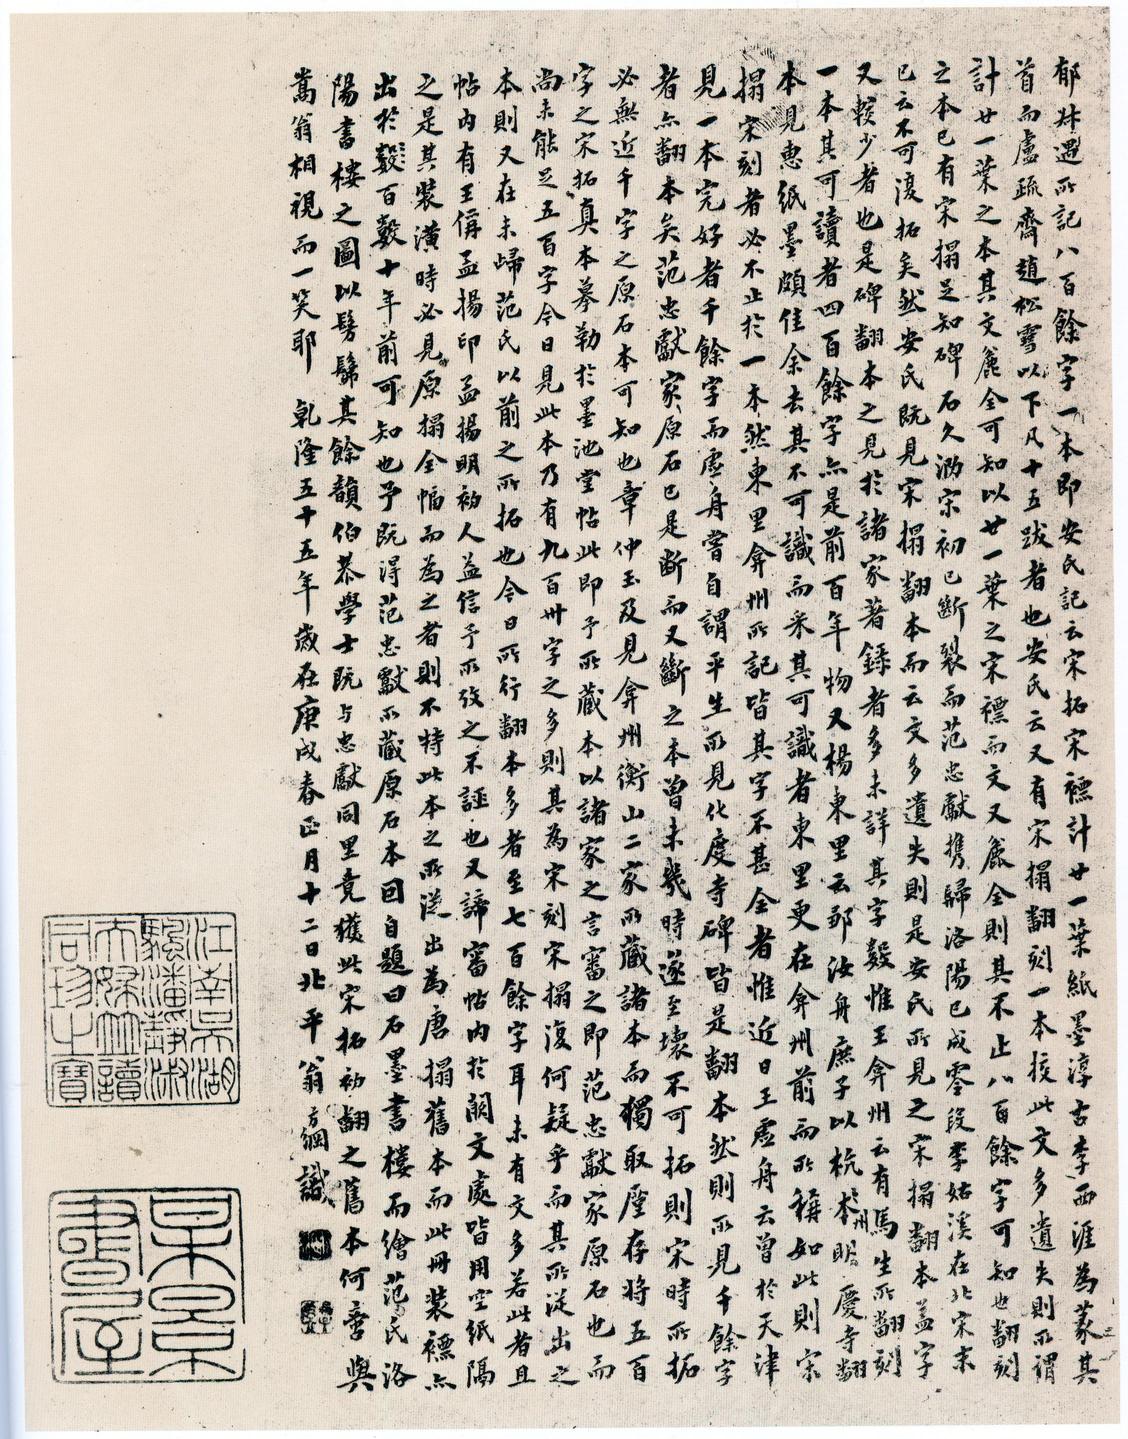 郁叔遇所記八百餘字一本即安氏記云宋拓宋褾計廿一葉紙墨淳古李西涯為篆其
首而盧疏齋趙松雪以下凡十五跋者也安氏云又有宋搨翻刻一本校此文多遺失則所謂
計廿一葉之本其文麄全可知以廿一葉之宋褾而文又麄全則其不止八百餘字可知也翻刻
之本已有宋搨足知碑石久泐宋初已斷裂而范忠獻携歸洛陽已成零段李姑溪在北宋末
已云不可復拓矣然安氏既見宋搨翻本而云文多遺失則是安氏所見之宋搨翻本蓋字
又較少者也是碑翻本之見於諸家著錄者多未詳其字數惟王弇州云有馬生所翻刻
一本其可讀者四百餘字亦是前百年物又楊東里云鄒汝舟庶子以杭州本明慶寺翻
本見惠紙墨頗佳余去其不可識而采其可識者東里更在弇州前而所稱如此則宋
搨宋刻者必不止於一本然東里弇州所記皆其字不甚全者惟近日王虛舟云曾於天津
見一本完好者千餘字而虛舟嘗自謂平生所見化度寺碑皆是翻本然則所見千餘字
者亦翻本矣范忠獻家原石已是斷而又斷之本曾未幾時遂至壞不可拓則宋時所拓
必無近千字之原石本可知也章仲玉及見弇州衡山二家所藏諸本而獨取廑存將五百
字之宋拓真本摹勒於墨池堂帖此即予所藏本以諸家之言審之即范忠獻家原石也而
尚未能足五百字今日見此本乃有九百卅字之多則其為宋刻宋搨復何疑乎而其所從出之
本則又在未歸范氏以前之所拓也今日所行翻本多者至七百餘字耳未有文多若此者且
帖內有王偁孟揚印孟揚明初人益信予所攷之不誣也又諦審帖內於闕文處皆用空紙隔
之是其裝潢時必見原搨全幅而為之者則不特此本之所從出為唐搨舊本而此冊裝褾亦
出於數百數十年前可知也予既得范忠獻所藏原石本因自題曰石墨書樓而繪范氏洛
陽書樓之圖以髣髴其餘韻伯恭學士既与忠獻同里竟獲此宋拓初翻之舊本何啻與
蒿翁相視而一笑耶 乾隆五十五年歲在庚戌春正月十二日北平翁方綱識
江南吳湖
颿潘靜淑
夫婦並讀
同珍之寶
某景
書屋